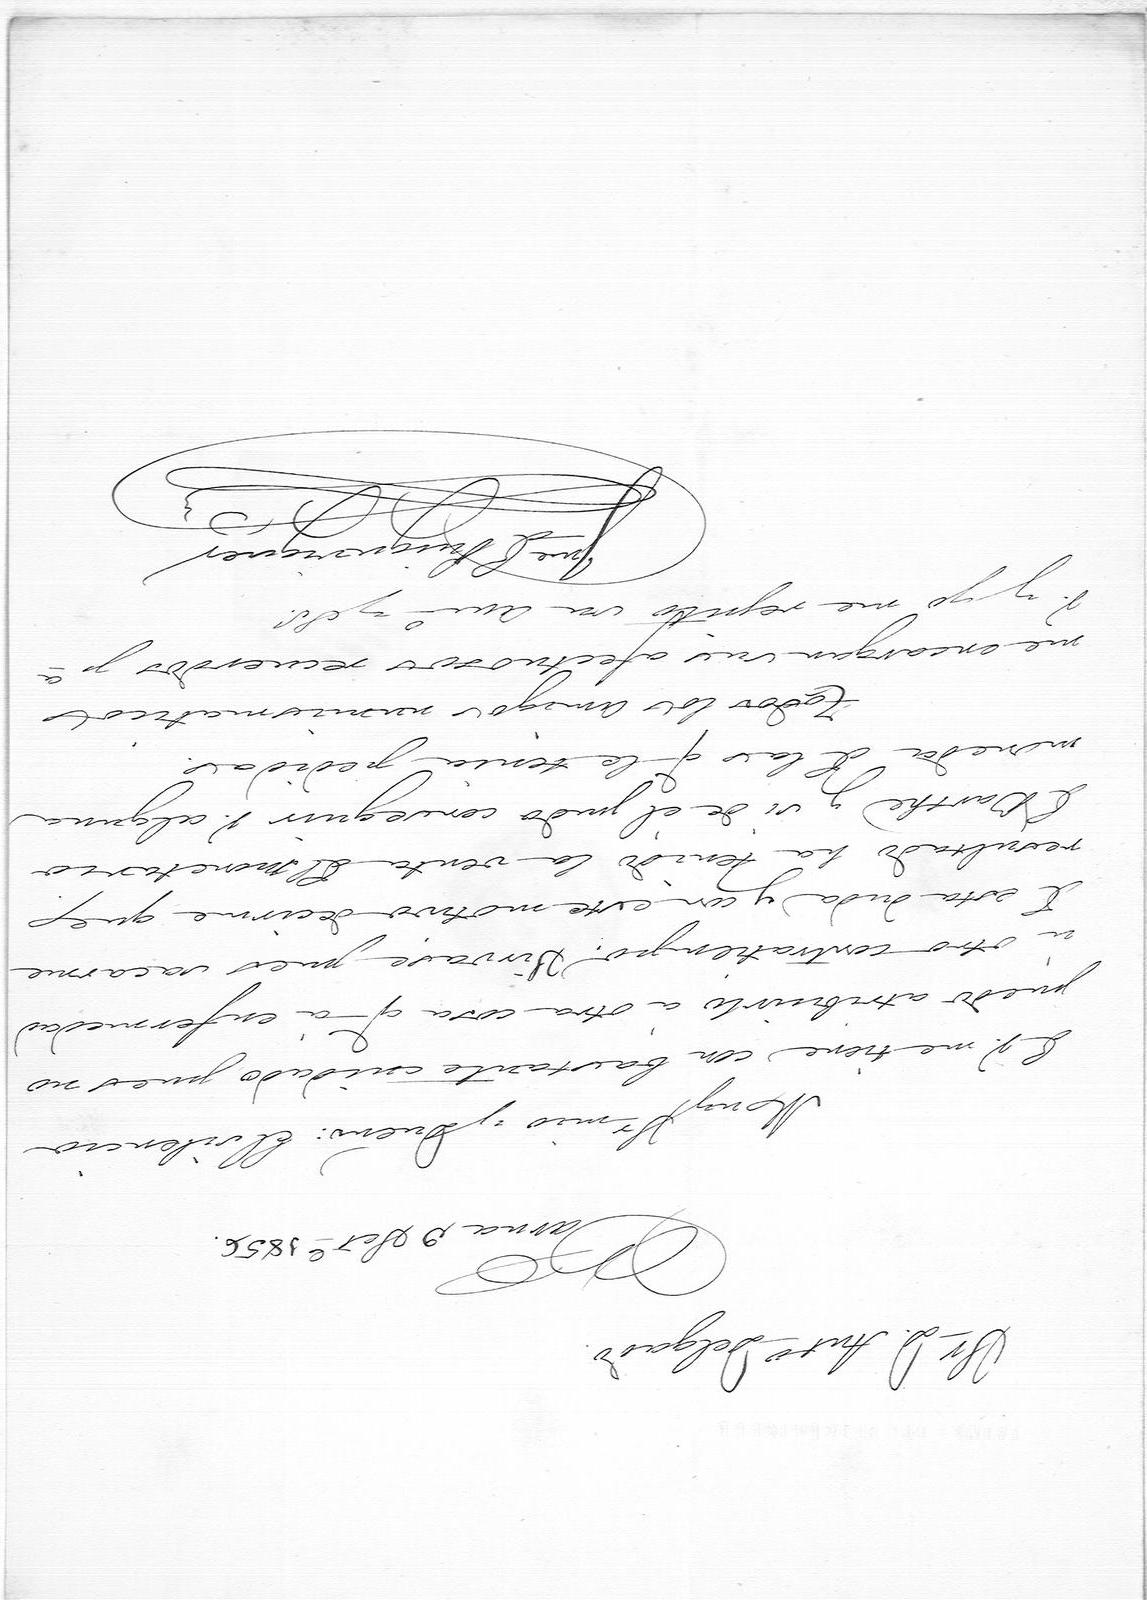 Sr. D. Antº Delgado.
Barna 9 Set.e 185
Muy Sr mio y Dueño: El silencio
de V. me tiene con bastante cuidado pues no
puedo atribuirlo á otra cosa q. á enfermedad
u otro contratiempo. Sirvase pues sacarme
de esta duda y con este motivo decirme que
resultado ha tenido la venta del monetario
de y si de el pudo conseguir V. alguna
moneda de las q. le tenia pedidas.
Todos los amigos numismaticos
me encargan sus afectuosos recuerdos pª
V. y yo me repito su y S.S.